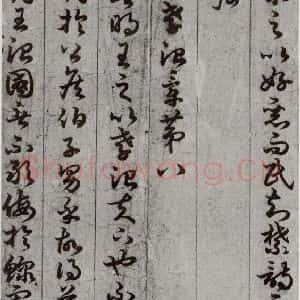 之以好惡而民知禁詩
孝治章第八
明王之以孝治天下也不
於公侯伯子男乎故得萬
治國者不敢侮於鰥
Shufawang.cn